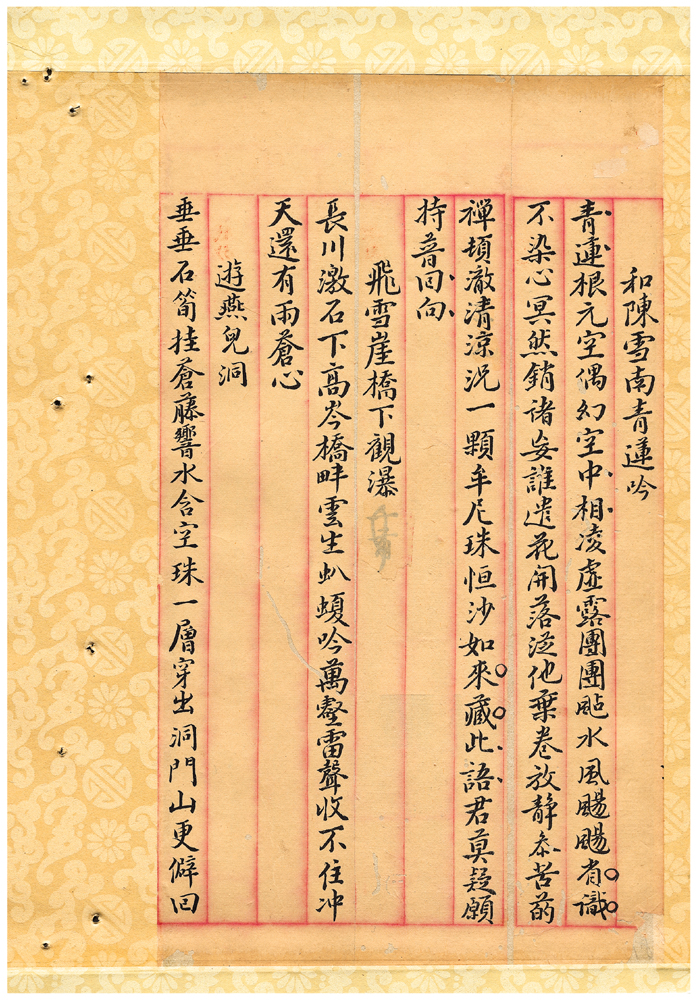 和陳雪南青蓮吟
青蓮根元空偶幻空中相凌虛露團團颭水風颺颺肯識
不染心冥然銷諸妄誰遣花開落從他葉卷放靜叅苦菂
禪頓澈清涼況一顆牟尼珠恒沙如來藏此語君莫疑願
持普回向
飛雪崖橋下觀瀑
長川激石下高岑橋畔雲生趴蝮吟萬壑雷聲收不住冲
天還有雨蒼心
遊燕兒洞
垂垂石筍挂蒼藤響水含空珠一層穿出洞門山更僻回